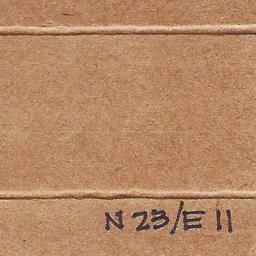 N 23/E 11